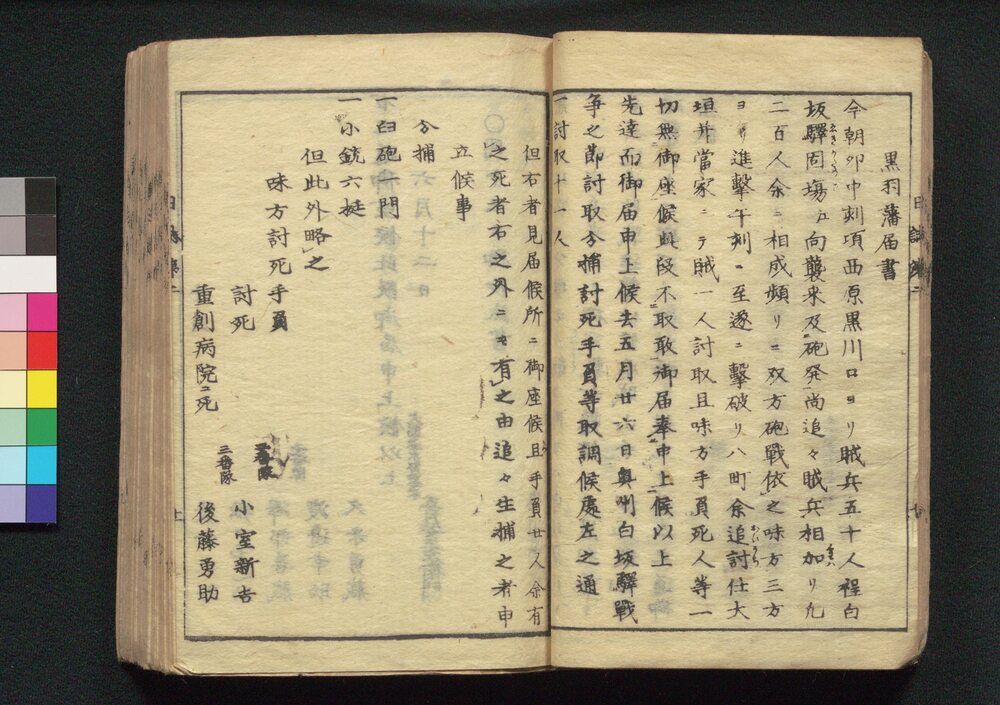 黒羽藩届書
今朝卯中刻頃西原黒川口ヨリ賊兵五十人程白
坂驛固場江向襲来及砲発尚追々賊兵相加リ九
二百人余ニ相成頻リニ双方砲戰依之味方三方
ヨリ進撃午刻ニ至遂ニ撃破リ八町余追討仕大
垣并當家ニテ賊一人討取且味方手負死人等一
切無御座候此段不取敢御届奉申上候以上
先達而御届申上候去五月廿六日奥州白坂驛戰
争之節討取分捕討死手負等取調候處左之通
一討取十一人
但右者見届候所ニ御座候且手負廿人余有
之死者右之外ニモ有之由追々生捕之者申
立候事
分捕
一臼砲一門
一小銃六挺
但此外略之
味方討死手負
討死
三番隊 小室新吉
重創病院ニ死
三番隊 後藤勇助